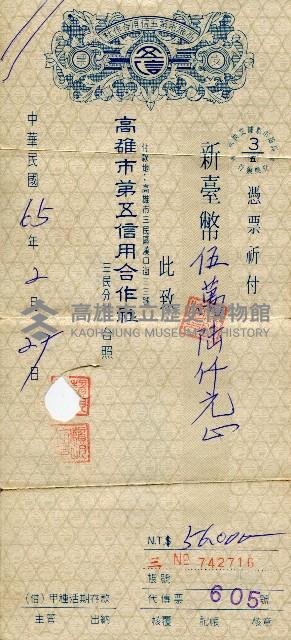 憑票祈付
新臺幣伍萬陸仟元正
此致
付款地：高雄市三民區漢口街
高雄市第五信用合作社
三民分社 台照
中華民國65年2月27日
高雄市立歷史博物館
KAOHSIUNG MUSEUM OF HISTORY
N.T.$ 56,000
三 No 742716
帳號
代傳票 605 號
(借)甲種活期存款
主管 出納 核覆 記帳 核章